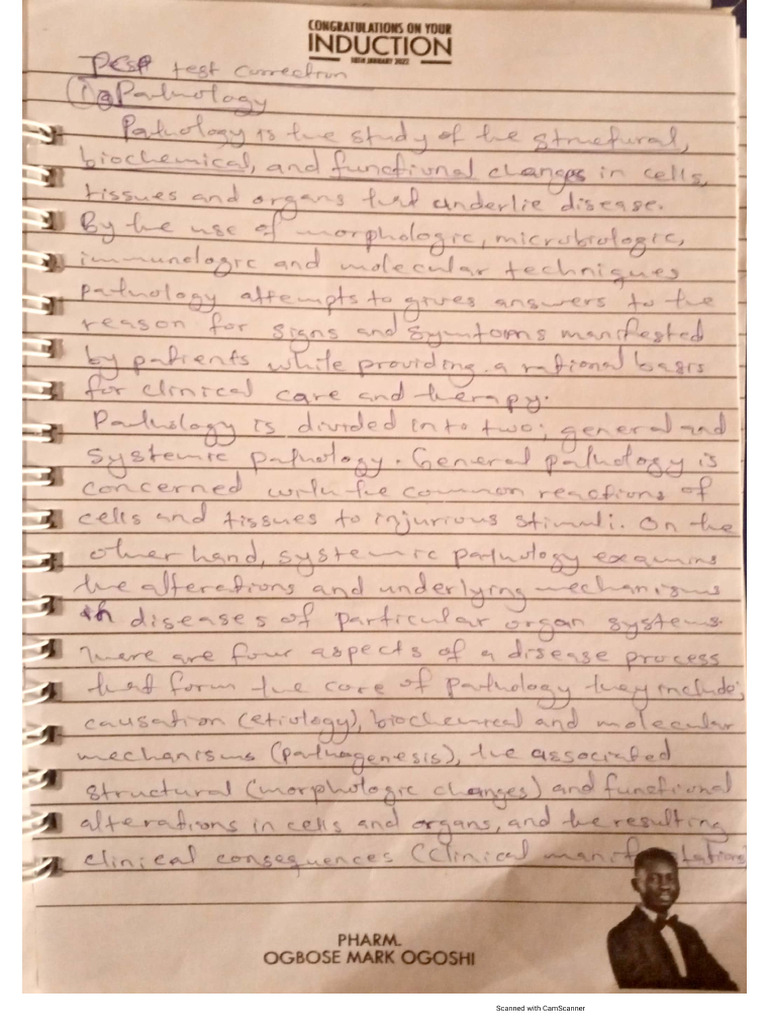 CONGRATULATIONS ON YOUR
INDUCTION
18TH JANUARY 2022
PCSP test correction
1a Pathology
Pathology is the study of the structural,
biochemical, and functional changes in cells,
tissues and organs that underlie disease.
By the use of morphologic, microbiologic,
immunologic and molecular techniques
pathology attempts to gives answers to the
reason for signs and symtoms manifested
by patients while providing a rational basis
for clinical care and therapy.
Pathology is divided into two; general and
systemic pathology. General pathology is
concerned with the common reactions of
cells and tissues to injurious stimuli. On the
other hand, systemic pathology examins
the alterations and underlying mechanisms
in diseases of particular organ systems.
There are four aspects of a disease process
that form the core of pathology they include;
causation (etiology), biochemical and molecular
mechanisms (pathogenesis), the associated
structural (morphologic changes) and functional
alterations in cells and organs, and the resulting
clinical consequences (clinical manifestations)
PHARM.
OGBOSE MARK OGOSHI
Scanned with CamScanner